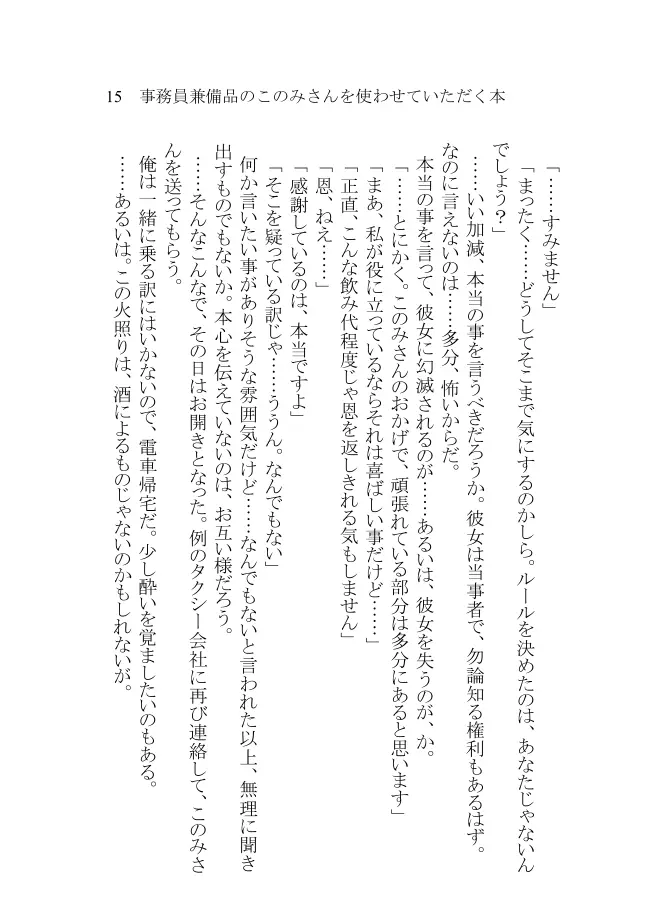 15 事務員兼備品のこのみさんを使わせていただく本
「……すみません」
「まったく……どうしてそこまで気にするのかしら。ルールを決めたのは、あなたじゃないん
でしょう？」
……いい加減、本当の事を言うべきだろうか。彼女は当事者で、勿論知る権利もあるはず。
なのに言えないのは……多分、怖いからだ。
本当の事を言って、彼女に幻滅されるのが……あるいは、彼女を失うのが、か。
「……とにかく。このみさんのおかげで、頑張れている部分は多分にあると思います」
「まあ、私が役に立っているならそれは喜ばしい事だけど……」
「正直、こんな飲み代程度じゃ恩を返しきれる気もしません」
「恩、ねえ……」
「感謝しているのは、本当ですよ」
「そこを疑っている訳じゃ……ううん。なんでもない」
何か言いたい事がありそうな雰囲気だけど……なんでもないと言われた以上、無理に聞き
出すものでもないか。本心を伝えていないのは、お互い様だろう。
……そんなこんなで、その日はお開きとなった。例のタクシー会社に再び連絡して、このみさ
んを送ってもらう。
俺は一緒に乗る訳にはいかないので、電車帰宅だ。少し酔いを覚ましたいのもある。
……あるいは。この火照りは、酒によるものじゃないのかもしれないが。